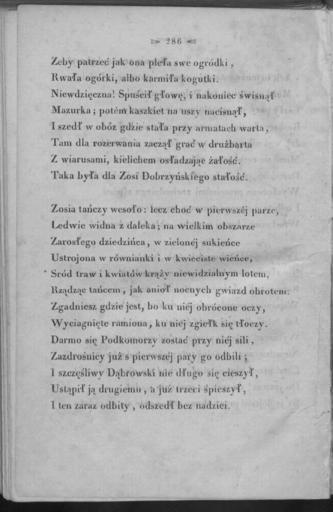 286
Żeby patrzeć jak ona pleła swe ogródki,
Rwała ogórki, albo karmiła kogutki.
Niewdzięczna! Spuścił głowę, i nakoniec świsnął
Mazurka; potém kaszkiet na uszy nacisnął,
I szedł w obóz gdzie stała przy armatach warta,
Tam dla rozerwania zaczął grać w drużbarta
Z wiarusami, kielichem osładzając żałość.
Taka była dla Zosi Dobrzyńskiego stałość.
Zosia tańczy wesoło: lecz choć w pierwszéj parze,
Ledwie widna z daleka; na wielkim obszarze
Zarosłego dziedzińca, w zielonéj sukience
Ustrojona w równianki i w kwieciste wieńce,
Sród traw i kwiatów krąży niewidzialnym lotem,
Rządząc tańcem, jak anioł nocnych gwiazd obrotem:
Zgadniesz gdzie jest, bo ku niéj obrócone oczy,
Wyciągnięte ramiona, ku niéj zgiełk się tłoczy.
Darmo się Podkomorzy zostać przy niéj sili,
Zazdrośnicy już s pierwszéj pary go odbili;
I szczęśliwy Dąbrowski nie długo się cieszył,
Ustąpił ją drugiemu, a już trzeci śpieszył,
I ten zaraz odbity, odszedł bez nadziei.